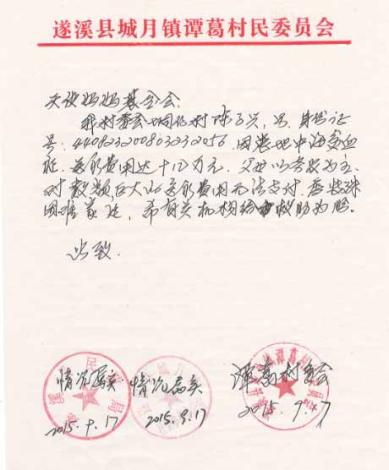 遂溪县城月镇谭葛村民委员会
天使妈妈基金会：
我村委会山向仔村陈子兴，男，身份证
号：440823200803232056，因患地中海贫血
症，医疗费用达十几万元，父母以务农为主，
对数额巨大的医疗费用无法支付，属特殊
困难家庭，希有关机构给予救助为盼。
此致
情况属实
情况属实
谭葛村委会
2015.9.17
2015.9.17
2015.9.17